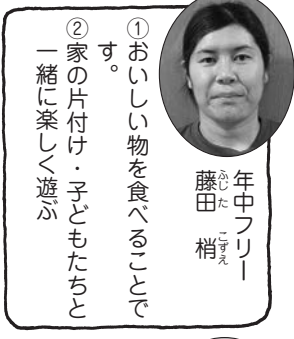 年中フリー
藤田　梢
ふじた　こずえ
①おいしい物を食べることで
す。
②家の片付け・子どもたちと
一緒に楽しく遊ぶ